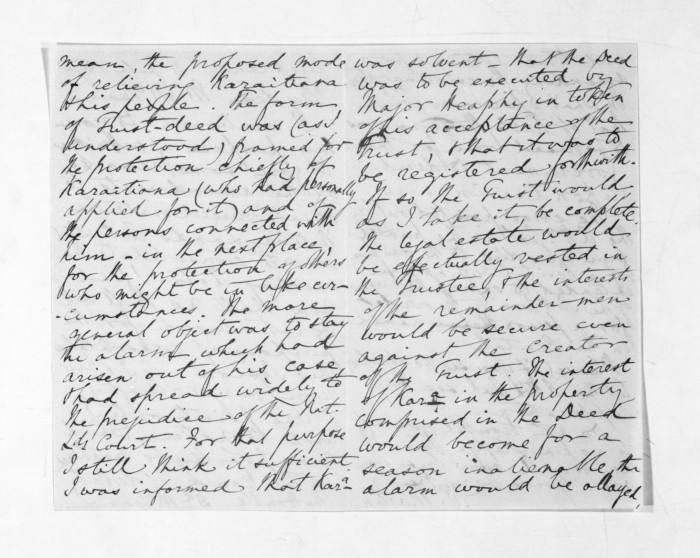 mean, the proposed mode
of relieving Karaitiana
& his people. The form
of Trust-deed was (as I
understood) framed for
the protection chiefly of
Karaitiana (who had personally
applied for it) and of
the persons connected with
him - in the next place,
for the protection of others
who might be in like cir-
-cumstances. The more
general object was to stay
the alarm, which had
arisen out of his case
& had spread widely to
the prejudice of the Nat.
Lds Court. For that purpose
I still think it sufficient
I was informed that Kara
was solvent - that the Deed
was to be executed by
Major Heaphy in token
of his acceptance of the
Trust, & that it was to
be registered forthwith.
If so, the Trust would
as I take it, be complete.
The legal estate would
be effectually vested in
the Trustee, & the interests
of the remainder-men
would be secure even
against the creator
of the Trust. The interest
of Kara in the property
comprised in the Deed
would become for a
season inalienable, the
alarm would be allayed,